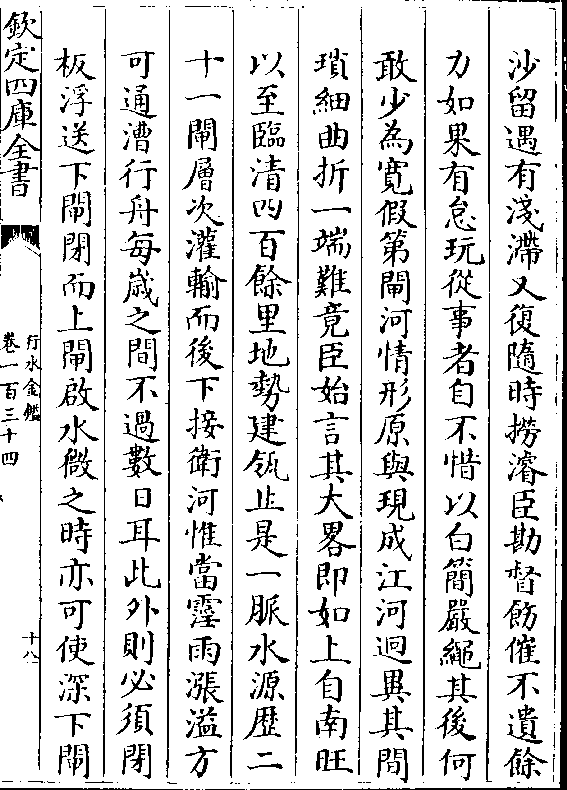 沙留遇有淺滯又復隨時撈濬臣勘督飭催不遺餘
力如果有怠玩從事者自不惜以白簡嚴繩其後何
敢少為寛假第閘河情形原與現成江河迥異其間
瑣細曲折一端難竟臣始言其大畧即如上自南旺
以至臨清四百餘里地勢建瓴止是一脈水源歴二
十一閘層次灌輸而後下接衛河惟當霪雨漲溢方
可通漕行舟每歳之間不過數日耳此外則必須閉
板浮送下閘閉而上閘啟水微之時亦可使深下閘
欽定四庫全書
行水金鑑
卷一百三十四
十八